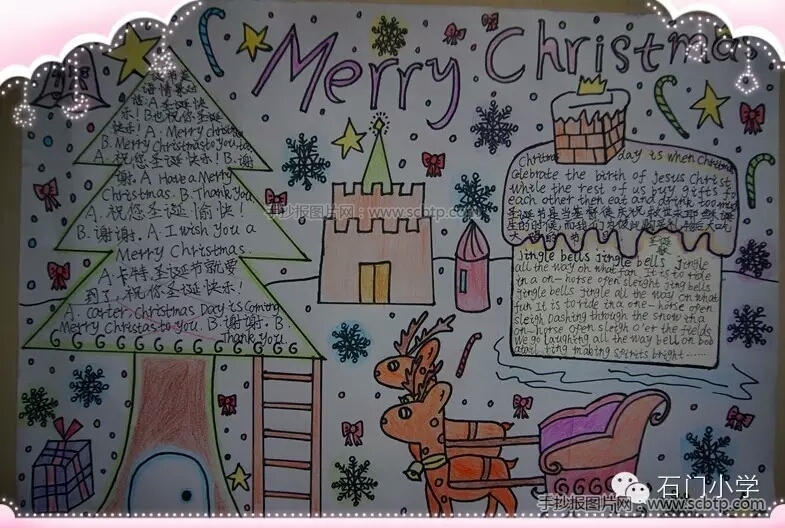 Merry Christmas
圣诞节是
语情景对
话：A.圣诞快
乐！B.也祝您圣诞
快乐！A. Merry christmas
B. Merry Christmas to you, too
A. 祝您圣诞快乐！B. 谢
谢. A. Have a Merry
Christmas. B. Thank You
A. 祝您圣诞愉快！
B. 谢谢. A. I wish You a
Merry Christmas.
A. 卡特，圣诞节就要
到了，祝您圣诞快乐！
A. carter, christmas Day is coming
Merry Christas to You. B. 谢谢. B.
Thank You.
手抄报图片网：www.scbtp.com
Christmas day is when Christians
celebrate the birth of jesus christ
while the rest of us buy gifts fo
each other then eat and drink too much
圣诞节是当基督徒庆祝
圣诞
歌
jingle bells jingle bells jingle
all the way oh what fun It is to ride
in a on-horse ofen sleight jing bells
jingle bells jingle all the way oh what
fun It is to ride in a one-horse ofen
sleigh Dashing through the snow in a
on-horse ofen sleigh o'er the fields
we go laughing all the way bell on bob
atail ring making spirits bright……
石门小学
手抄报图片网：www.scbtp.com